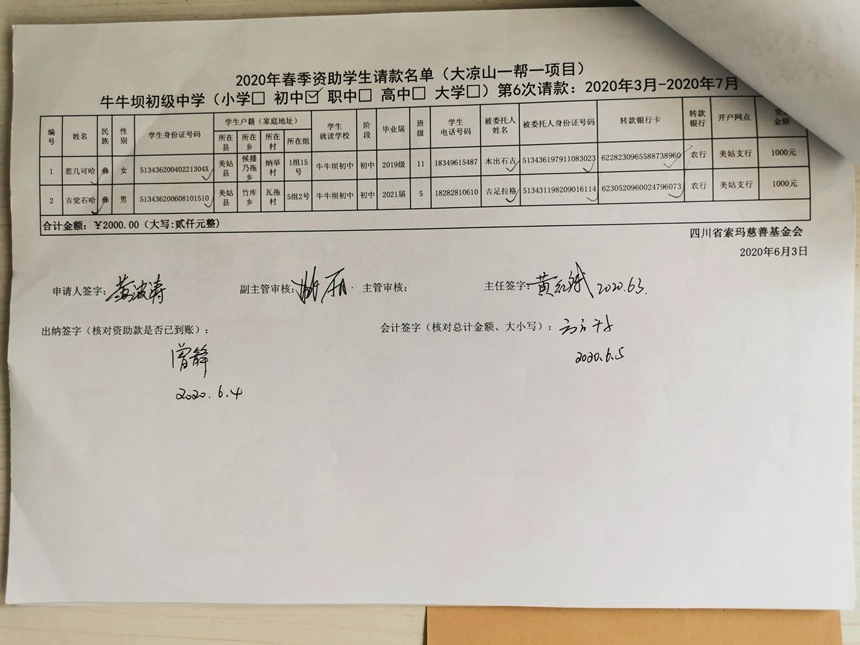 2020年春季资助学生请款名单（大凉山一帮一项目）
牛牛坝初级中学（小学□ 初中☑ 职中□ 高中□ 大学□）第6次请款：2020年3月-2020年7月
编号 姓名 民族 性别 学生身份证号码 学生户籍（家庭地址） 所在县 所在乡 所在村 所在组 学生就读学校 阶段 毕业届 班级 学生电话号码 被委托人姓名 被委托人身份证号码 转款银行卡 转款银行 开户网点 金额
1 惹几可哈 彝 女 51343620040221304X 美姑县 候播乃拖乡 纳举村 1组15号 牛牛坝初中 初中 2019级 11 18349615487 木出石古 513436197911083023 6228230965588738960 农行 美姑支行 1000元
2 吉觉石哈 彝 男 513436200608101510 美姑县 竹库乡 瓦拖村 5组2号 牛牛坝初中 初中 2021届 5 18282810610 吉足拉格 513431198209016114 6230520960024796073 农行 美姑支行 1000元
合计金额：￥2000.00（大写:贰仟元整）
四川省索玛慈善基金会
2020年6月3日
申请人签字： 副主管审核： 主管审核： 主任签字：黄红斌 2020.6.3.
出纳签字（核对资助款是否已到账）： 会计签字（核对总计金额、大小写）：
曾静
2020.6.5
2020.6.4